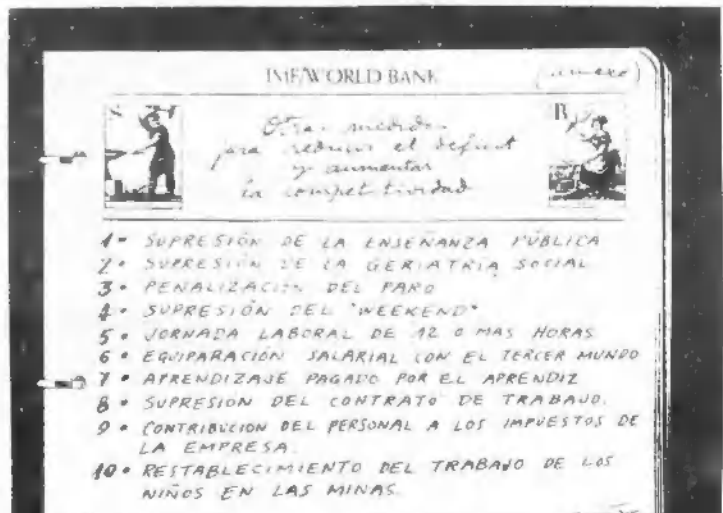 IMF/WORLD BANK
(anexo)
Otras medidas
para reducir el deficit
y aumentar
la competitividad
B
1• SUPRESIÓN DE LA ENSEÑANZA PÚBLICA
2• SUPRESIÓN DE LA GERIATRIA SOCIAL
3• PENALIZACIÓN DEL PARO
4• SUPRESIÓN DEL "WEEKEND"
5• JORNADA LABORAL DE 12 O MAS HORAS
6• EQUIPARACIÓN SALARIAL CON EL TERCER MUNDO
7• APRENDIZAJE PAGADO POR EL APRENDIZ
8• SUPRESIÓN DEL CONTRATO DE TRABAJO.
9• CONTRIBUCIÓN DEL PERSONAL A LOS IMPUESTOS DE
LA EMPRESA.
10• RESTABLECIMIENTO DEL TRABAJO DE LOS
NIÑOS EN LAS MINAS.